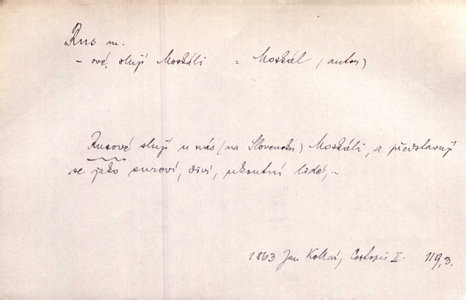 Rus m.
– ové, slují Moskáli = Moskál (autor)
Rusové slují u nás (na Slovensku) Moskáli, a představují
se jako suroví, diví, ukrutní lidé,..
1863 Jan Kollár, Cestopis II. 119,3.